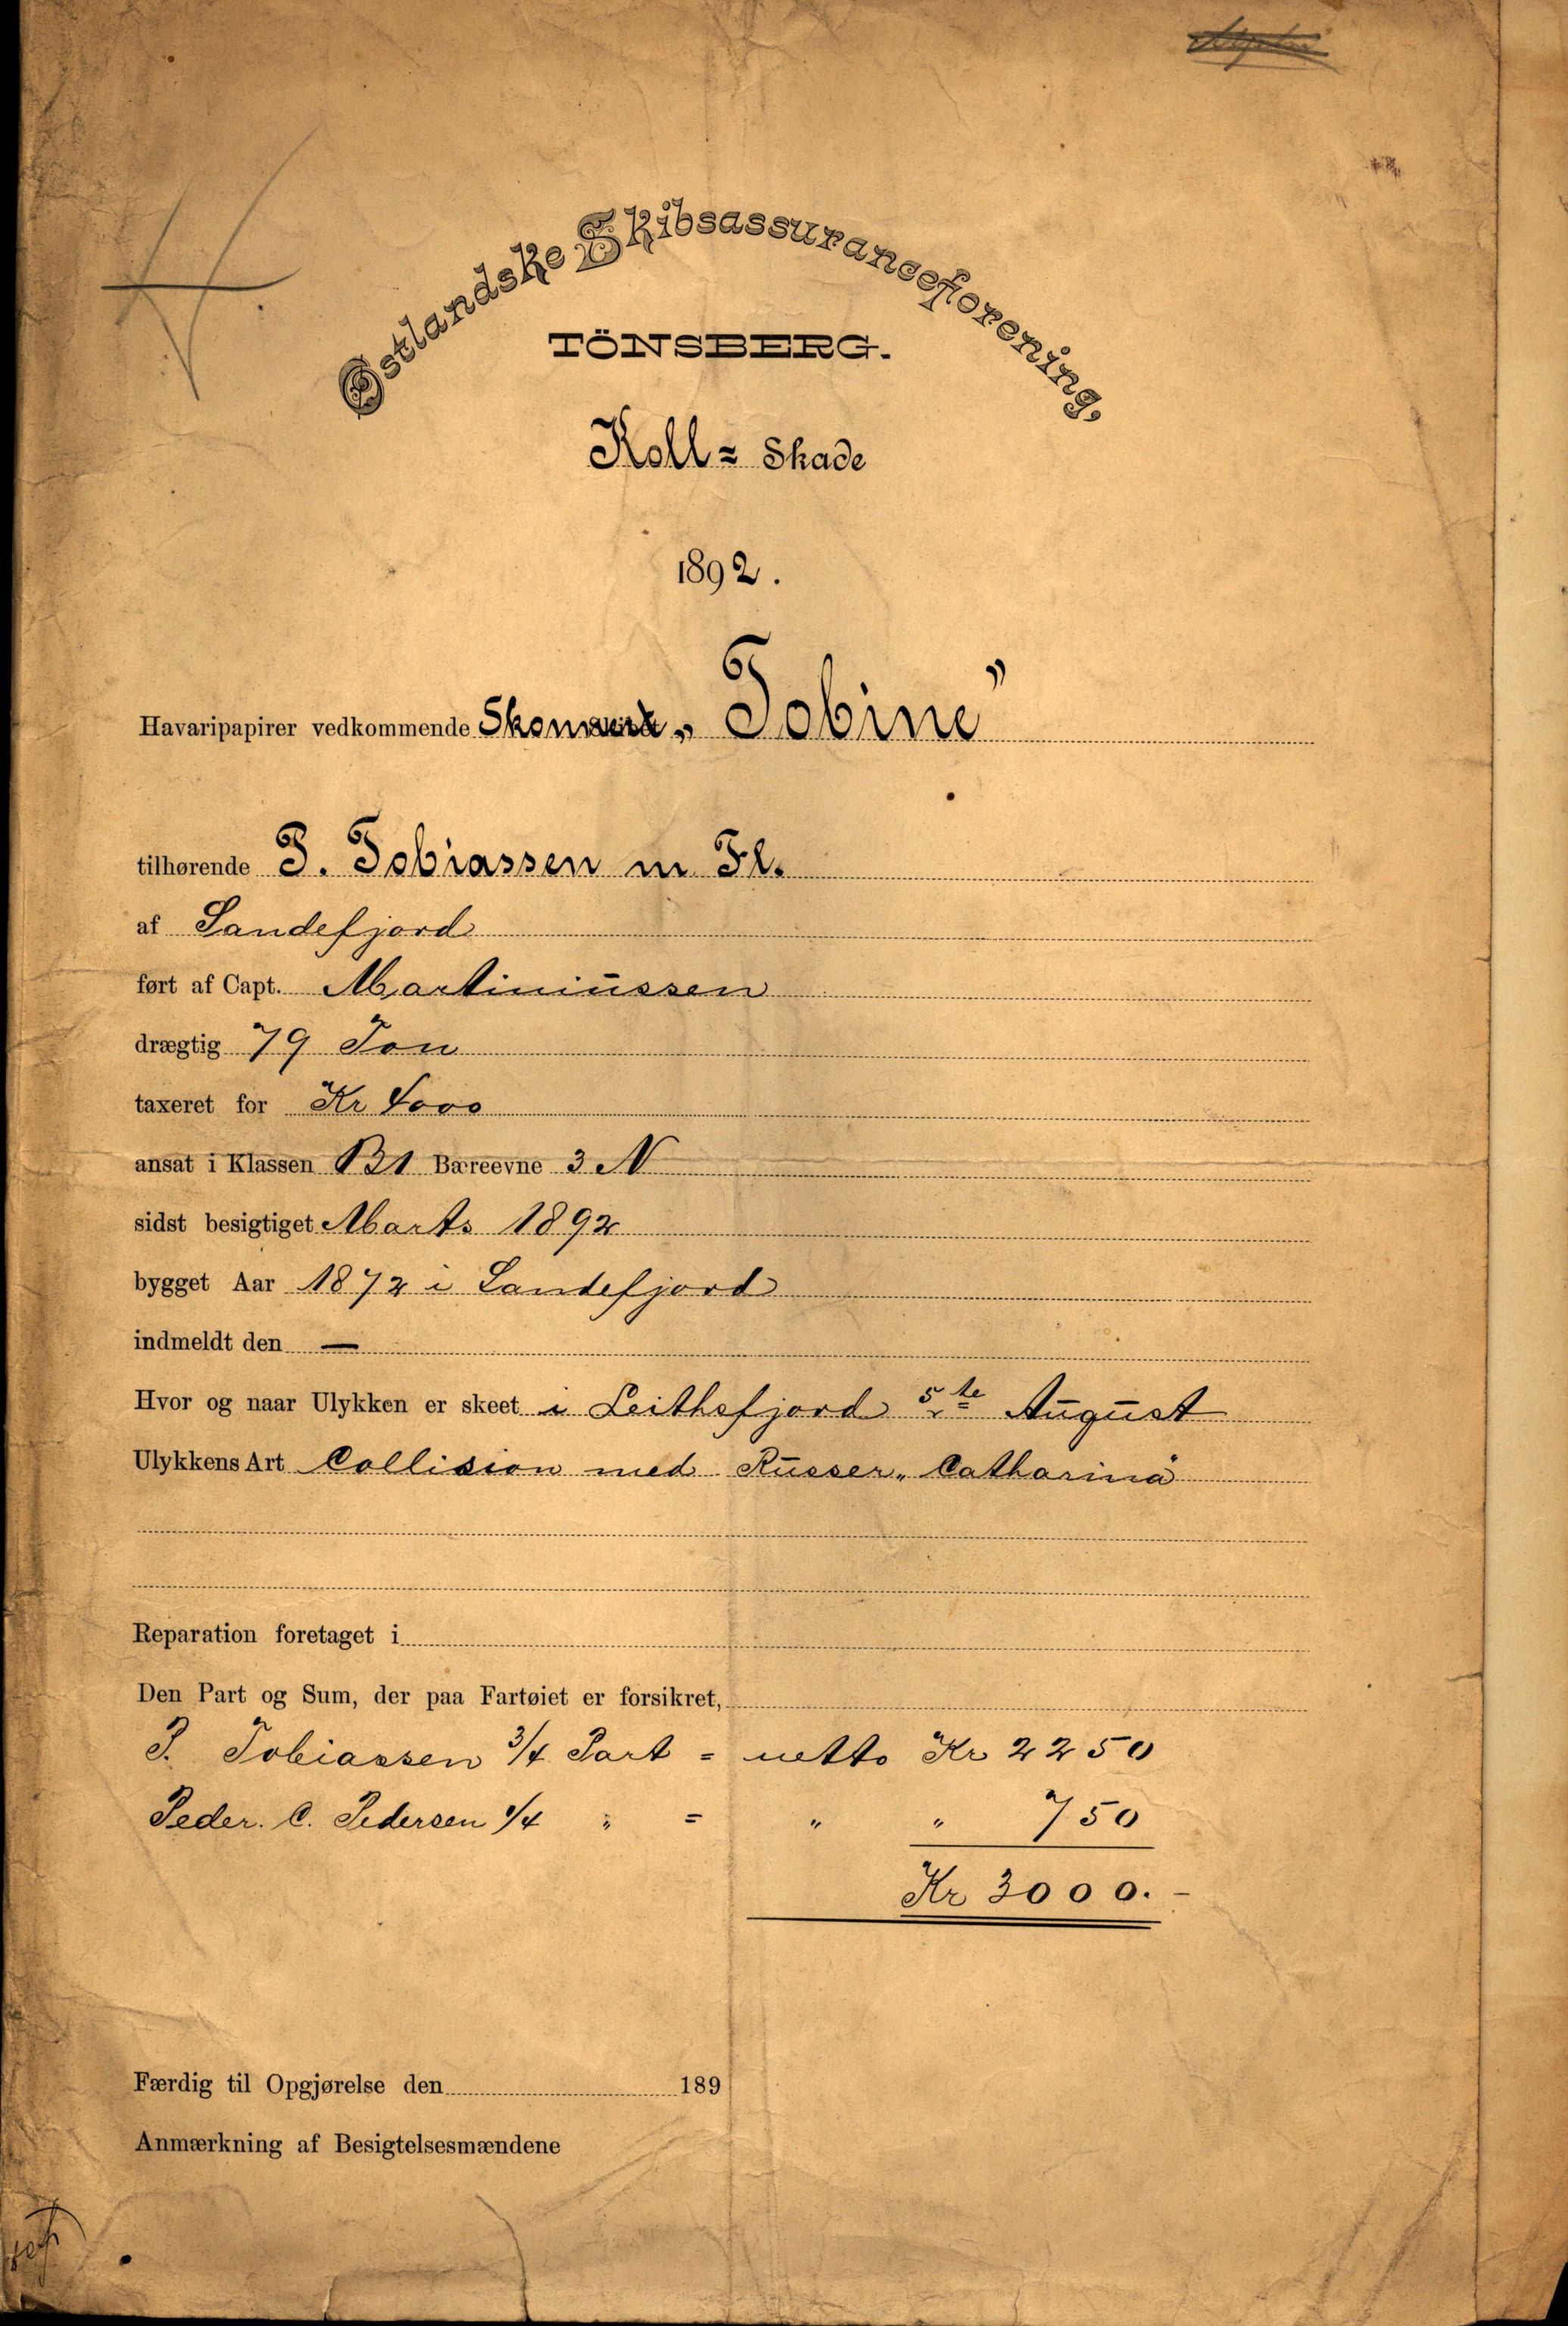 Østlandske Skibsassuranceforening,
TÖNSBERG.
Koll = Skade
1892.
Havaripapirer vedkommende Skonnert „Tobine”
tilhørende P. Tobiassen m Fl.
af Sandefjord
ført af Capt. Martiniussen
drægtig 79 Ton
taxeret for Kr 4000
ansat i Klassen B1 Bæreevne 3 N
sidst besigtiget Marts 1892
bygget Aar 1872 i Sandefjord
indmeldt den —
Hvor og naar Ulykken er skeet i Leithsfjord 5te August
Ulykkens Art Collision med Russer „Catharina”
Reparation foretaget i
Den Part og Sum, der paa Fartøiet er forsikret,
P. Tobiassen 3/4 Part = netto Kr 2250
Peder. C. Pedersen 1/4 " = " " 750
Kr 3000.-
Færdig til Opgjørelse den 189
Anmærkning af Besigtelsesmændene